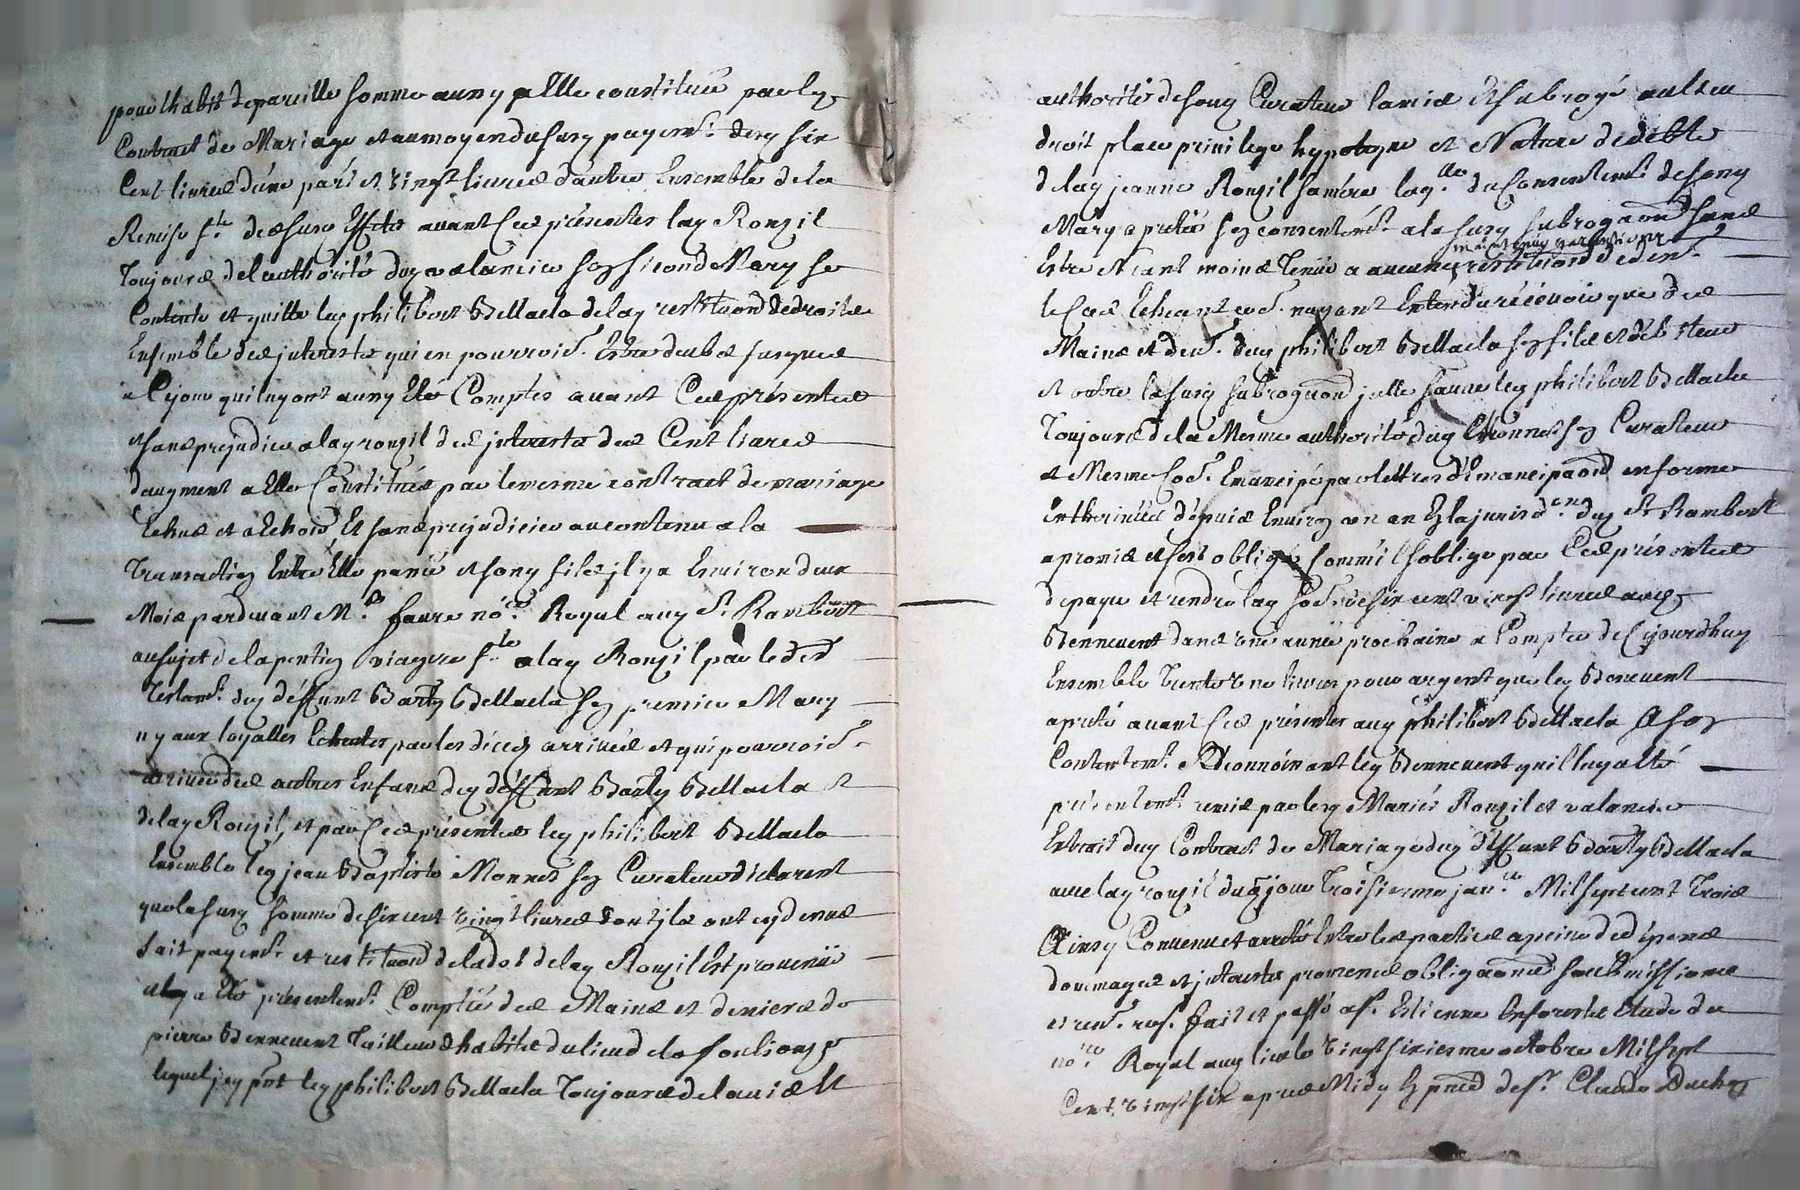 pour habit de pareille somme aussy a Elle constituée par led
Contract de Mariage et au moyen dususd payemt. desd six
Cent livres d'une part et vingt livres d'autre Ensemble de la
Remise fte. des susd Effets avant Ces présentes lad Rouzil
Toujours de l'authorité dud valancier son second Mary se
Contente et quitte led philibert Bellacla de lad restituõn de droits
Ensemble des interests qui en pourroit. Estre deubs jusques
a Cejour qui luy ont aussy Eté Comptes avant Ces présentes
et sans préjudice a lad rouzil des interests des Cent livres
daugment a Elle Constitués par le mesme contract de mariage
Echus et a Echoir, Et sans prejudicier au contenu a la
Transaction Entre Elle passée et sond fils il y a Environ deux
Mois pardevant Me. faure nore. Royal aud St. Rambert
au sujet de la pention viagere fte. a lad Rouzil par le der
Testamt. dud deffunt Barty Bellacla son premier Mary
ny aux loyalles Echeutes par les décès arrivés et qui pourroit.
arriver des autres Enfans dud deffunt Barty Bellacla et
de lad Rouzil, et par Ces présentes led philibert Bellacla
Ensemble led jean Baptiste Monnet son Curateur déclarent
que la susd somme de six cent vingt livres dont ils ont cy dessus
fait payemt. et restituõn de la dot de lad Rouzil Est provenüe
et luy a Eté présentemt. Comptée des Mains et deniers de
pierre Bennevent Tailleur d'habits du lieu de la foulliouze
lequel icy pnt led philibert Bellacla Toujours de lavis et
authorité de sond Curateur la mis et subrogé aulieu
droit place privilege hypoteque et Nature de debte
de lad jeanne Rouzil sa mère laqlle. du Consentemt. de sond
Mary a prété son consentemt. a la susd subrogaõn sans
Estre et sans moins Tenüe a aucune restitution de denr.
le Cas Echeant cod. nayant Entendu récevoir que des
Mains et denr. dud philibert Bellacla son fils et débiteur
et outre la susd subrogaõn icelle sauve led philibert Bellacla
Toujours de la Mesme authorité dud Monnet son Curateur
et Mesme Cod. Emancipé par lettres d'Emancipaõn en forme
Entherinées dépuis Environ un an En la jurisdon. dud St Rambert
a promis et sest obligé comme il s'oblige par Ces présentes
de payer et rendre lad sode. de six cent vingt livres aud
Bennevent dans une année prochaine a Compter de Cejourdhuy
Ensemble Trente une livres pour argent que led Benevent
a prété avant Ces présentes aud philibert Bellacla a son
Contentemt. Réconnoissant led Bennevent quil luy a Eté
présentemt. remis par lesd Mariés Rouzil et valancier
Extrait dud Contract de Mariage dud deffunt Barty Bellacla
avec lad rouzil dud jour Troisiesme janer. Mil sept cent Trois
Ainsy Convenu et arreté Entre les parties a peine de dépens
dommages et interests promesses obligaõns soubmissions
et renr. rqs. fait et passé a St. Estienne En forests Etude du
nore. Royal aud lieu le vingt sixiesme octobre Mil sept
Cent vingt six apres Midy En pnce de Sr. Claude